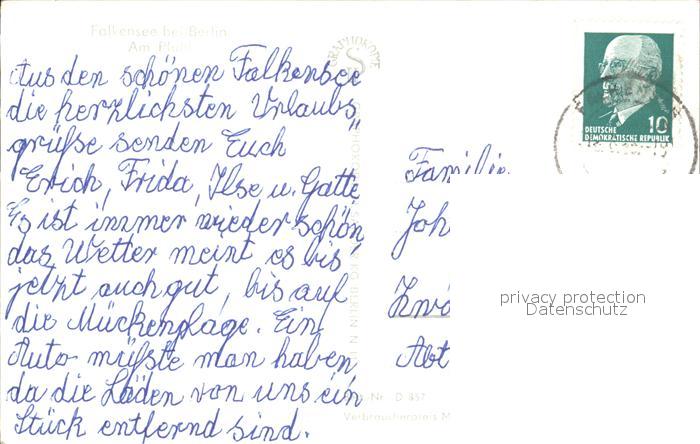 Falkensee bei Berlin
Am
Aus den schönen Falkensee
die herzlichsten Urlaubs„
grüße senden Euch
Erich, Frida, Ilse u. Gatte
Es ist immer wieder schön,
das Wetter meint es bis
jetzt auch gut, bis auf
die Mückenplage. Ein
Auto müßte man haben,
da die Läden von uns ein
Stück entfernd sind.
Familie
Joh
Zwö
Abt
10
DEUTSCHE
DEMOKRATISCHE REPUBLIK
privacy protection
Datenschutz
D 857
Verbraucherpreis M